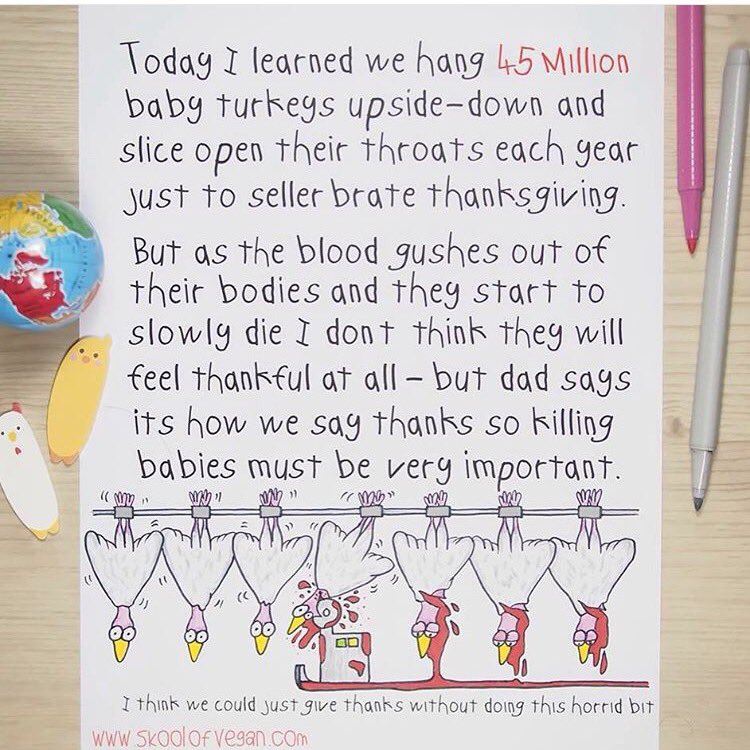 Today I learned we hang 45 Million
baby turkeys upside-down and
slice open their throats each year
just to seller brate thanksgiving.
But as the blood gushes out of
their bodies and they start to
slowly die I dont think they will
feel thankful at all – but dad says
its how we say thanks so killing
babies must be very important.
I think we could just give thanks without doing this horrid bit
www.skoolofvegan.com